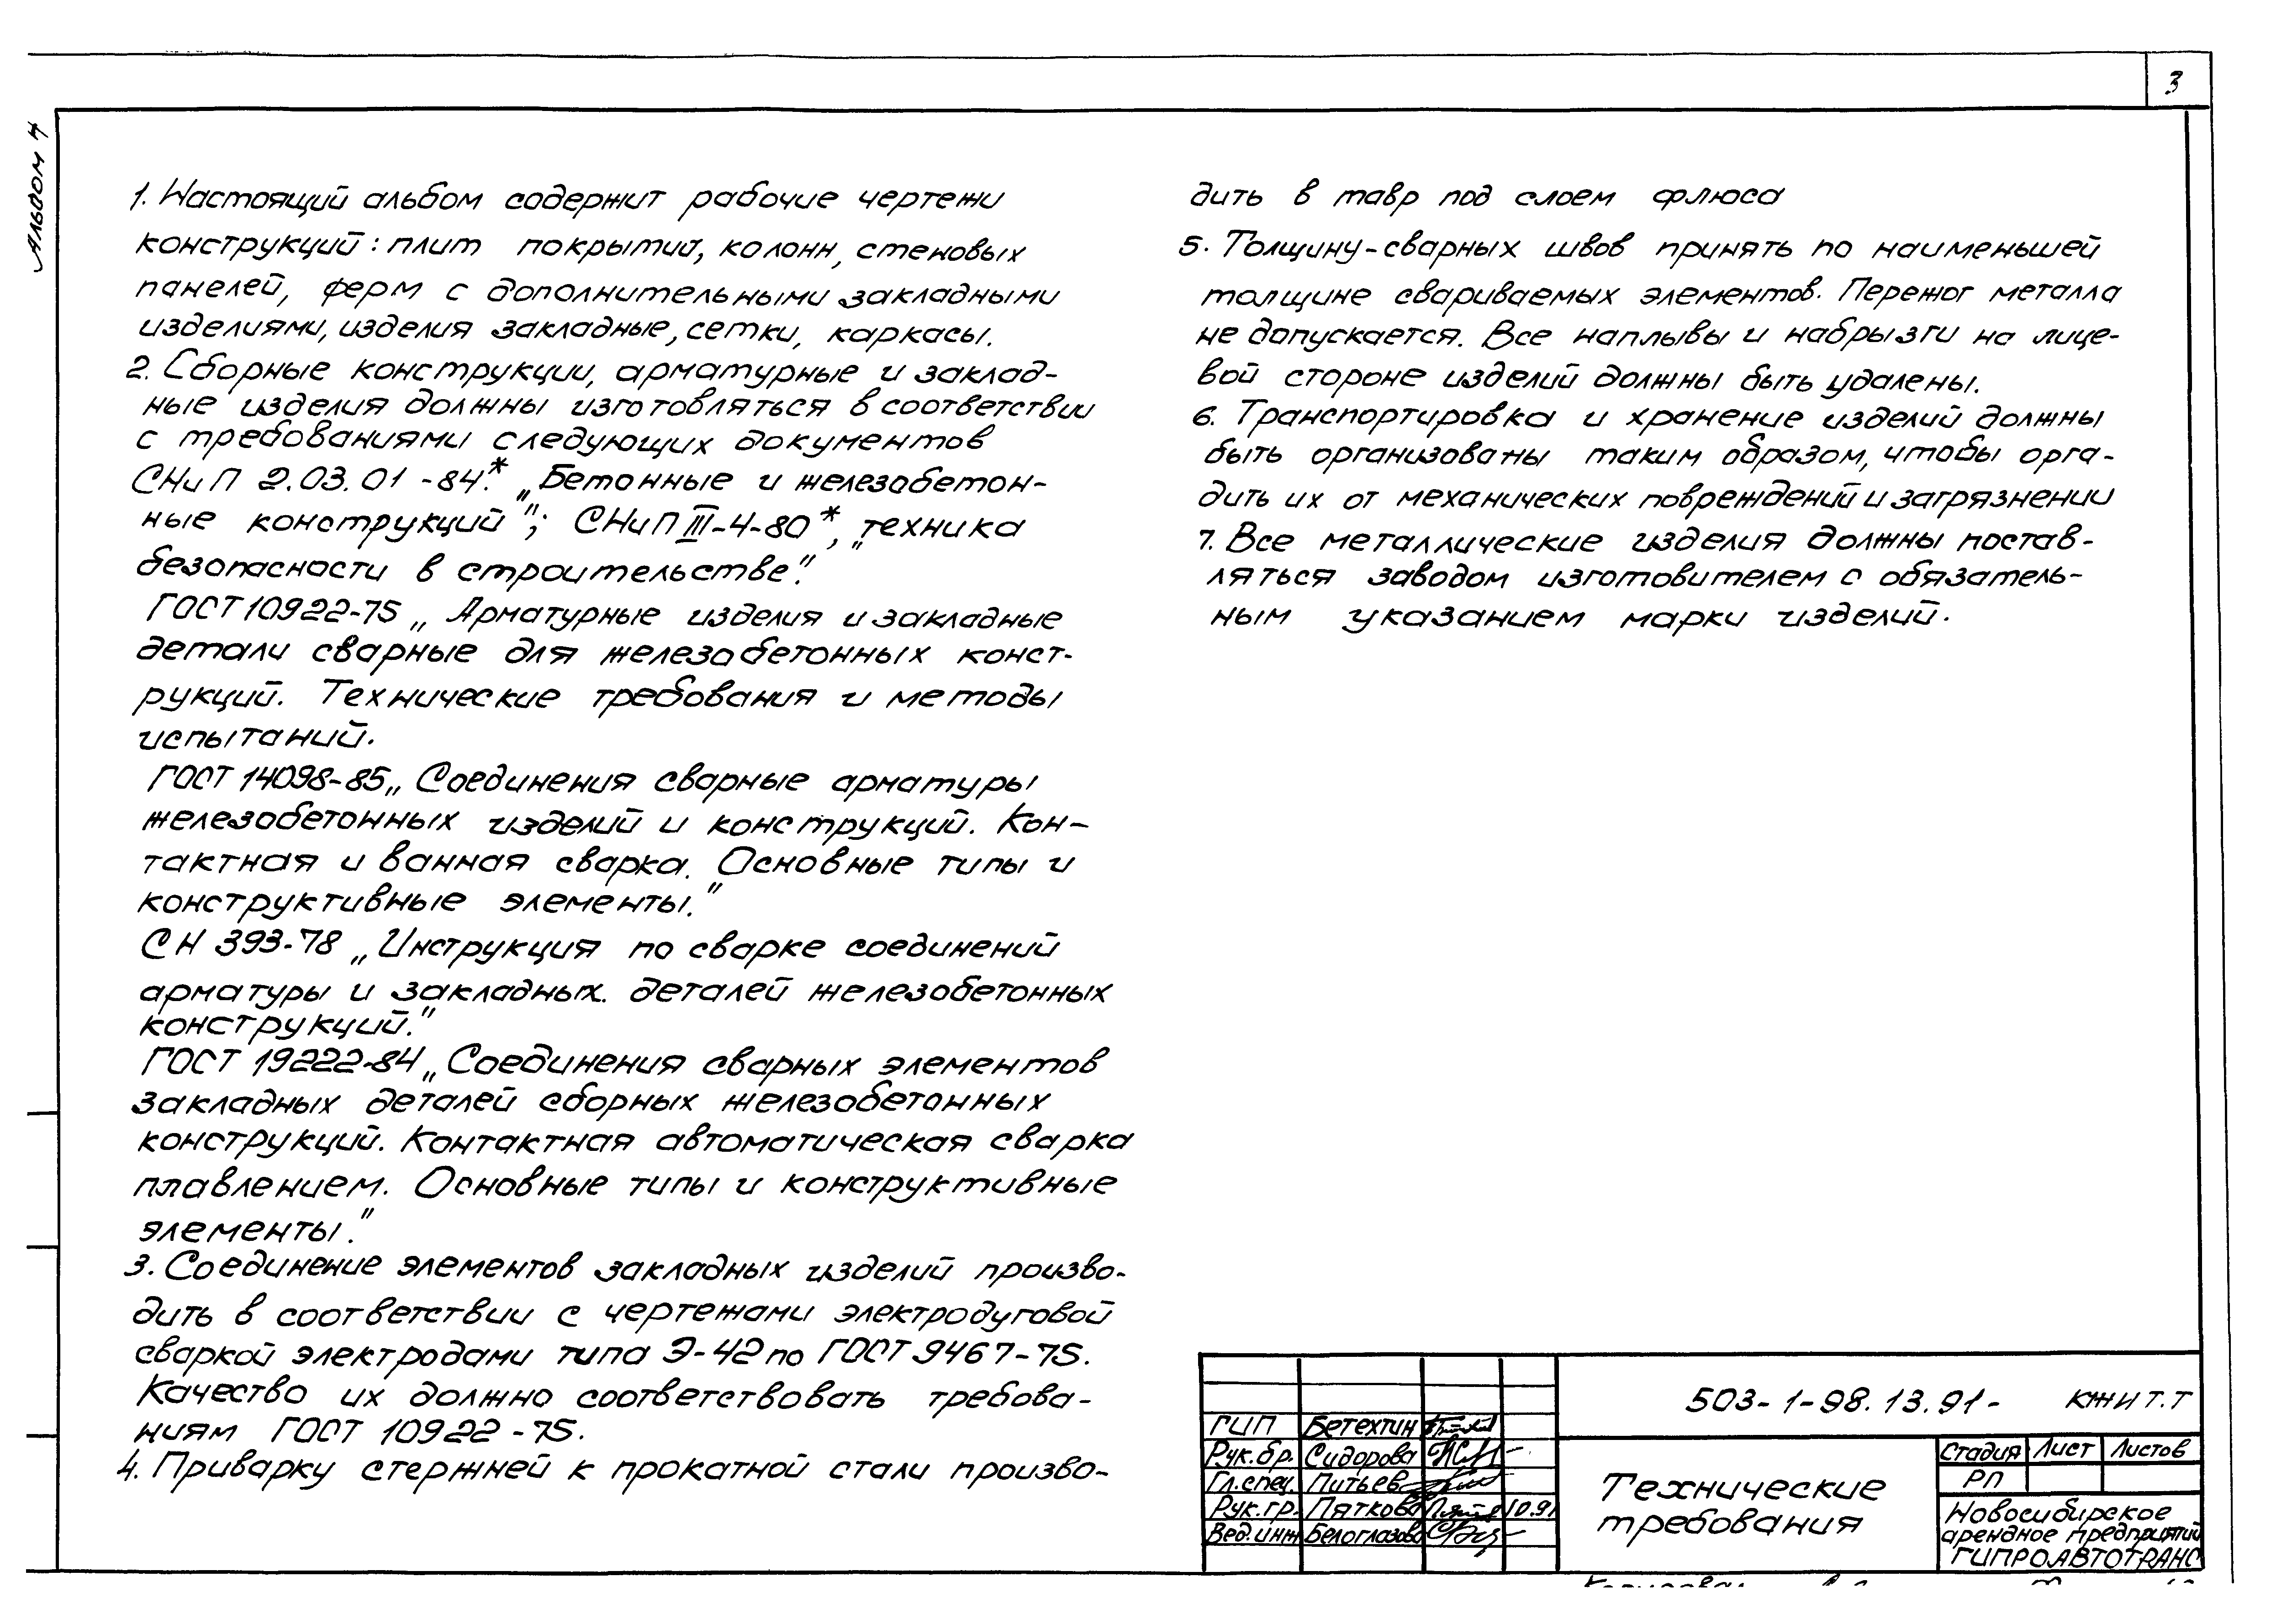 3
Альбом 4
1. Настоящий альбом содержит рабочие чертежи
конструкций: плит покрытий, колонн, стеновых
панелей, ферм с дополнительными закладными
изделиями, изделия закладные, сетки, каркасы.
2. Сборные конструкции, арматурные и заклад-
ные изделия должны изготовляться в соответствии
с требованиями следующих документов
СНиП 2.03.01-84.* „Бетонные и железобетон-
ные конструкций"; СНиП III-4-80*, „техника
безопасности в строительстве."
ГОСТ 10922-75 „Арматурные изделия и закладные
детали сварные для железобетонных конст-
рукций. Технические требования и методы
испытаний.
ГОСТ 14098-85 „Соединения сварные арматуры
железобетонных изделий и конструкций. Кон-
тактная и ванная сварка. Основные типы и
конструктивные элементы."
СН 393-78 „Инструкция по сварке соединений
арматуры и закладных. деталей железобетонных
конструкций."
ГОСТ 19222-84 „Соединения сварных элементов
закладных деталей сборных железобетонных
конструкций. Контактная автоматическая сварка
плавлением. Основные типы и конструктивные
элементы."
3. Соединение элементов закладных изделий произво-
дить в соответствии с чертежами электродуговой
сваркой электродами типа Э-42 по ГОСТ 9467-75.
Качество их должно соответствовать требова-
ниям ГОСТ 10922-75.
4. Приварку стержней к прокатной стали произво-
дить в тавр под слоем флюса
5. Толщину-сварных швов принять по наименьшей
толщине свариваемых элементов. Пережог металла
не допускается. Все наплывы и набрызги на лице-
вой стороне изделий должны быть удалены.
6. Транспортировка и хранение изделий должны
быть организованы таким образом, чтобы огра-
дить их от механических повреждений и загрязнении
7. Все металлические изделия должны постав-
ляться заводом изготовителем с обязатель-
ным указанием марки изделий.
503-1-98.13.91- КЖИ Т.Т
ГИП Бетехтин
Рук.бр. Сидорова
Гл.спец. Питьев
Рук.гр. Пяткова 10.91
Вед.инж Белоглазова
Технические
требования
Стадия Лист Листов
РП
Новосибирское
арендное предприятий
ГИПРОАВТОТРАНС